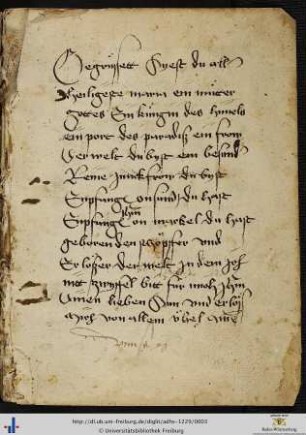 Gegrüssett Syest du aller
heiligeste maria ein müter
gottes Ein küngin des hymels
ein port des paradiß ein frow
der welt du byst ein besund
Reine junckfrow du hast
Empfangen on sund du hast
Jhm
geboren den schöpfer und
Erlößer der welt in dem ich
nit zwyfel bit für mich Jhm
dinen lieben Sun und erlöß
mich von allem übel Ame
http://dl.ub.uni-freiburg.de/diglit/adhs-1229/0003
© Universitätsbibliothek Freiburg
Baden-Württemberg